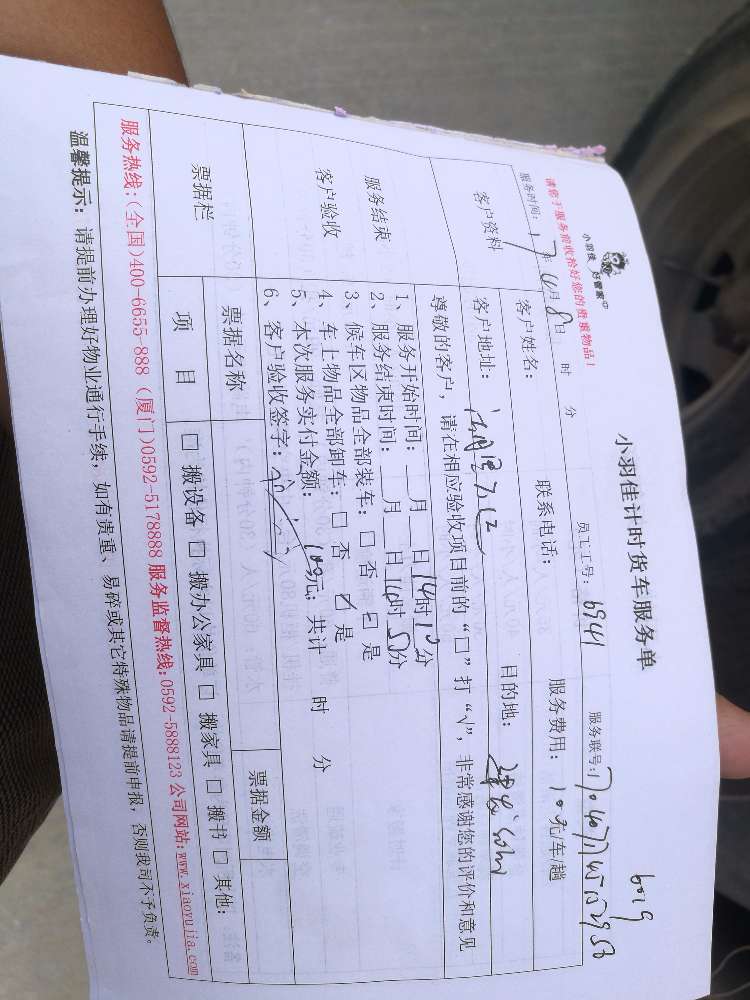 小羽佳 好管家
请您于服务前收拾好您的贵重物品!
小羽佳计时货车服务单
6019
服务时间: 17年4月8日 时 分
员工工号: 6941
服务联号:
客户资料
客户姓名:
联系电话:
服务费用: 元/车/趟
客户地址:
目的地:
尊敬的客户, 请在相应验收项目前的“□”打“√”, 非常感谢您的评价和意见
服务结束
客户验收
1、服务开始时间: 月 日14时10分
2、服务结束时间: 月 日16时50分
3、候车区物品全部装车: □ 否 ☑ 是
4、车上物品全部卸车: □ 否 ☑ 是
5、本次服务实付金额: 元; 共计 时 分
6、客户验收签字:
票据栏
票据名称
票据金额
项 目
□ 搬设备 □ 搬办公家具 □ 搬家具 □ 搬书 □ 其他:
服务热线: (全国)400-6655-888 (厦门)0592-5178888 服务监督热线: 0592-5888123 公司网站: www.xiaoyujia.com
温馨提示: 请提前办理好物业通行手续, 如有贵重、易碎或其它特殊物品请提前申报, 否则我司不予负责。